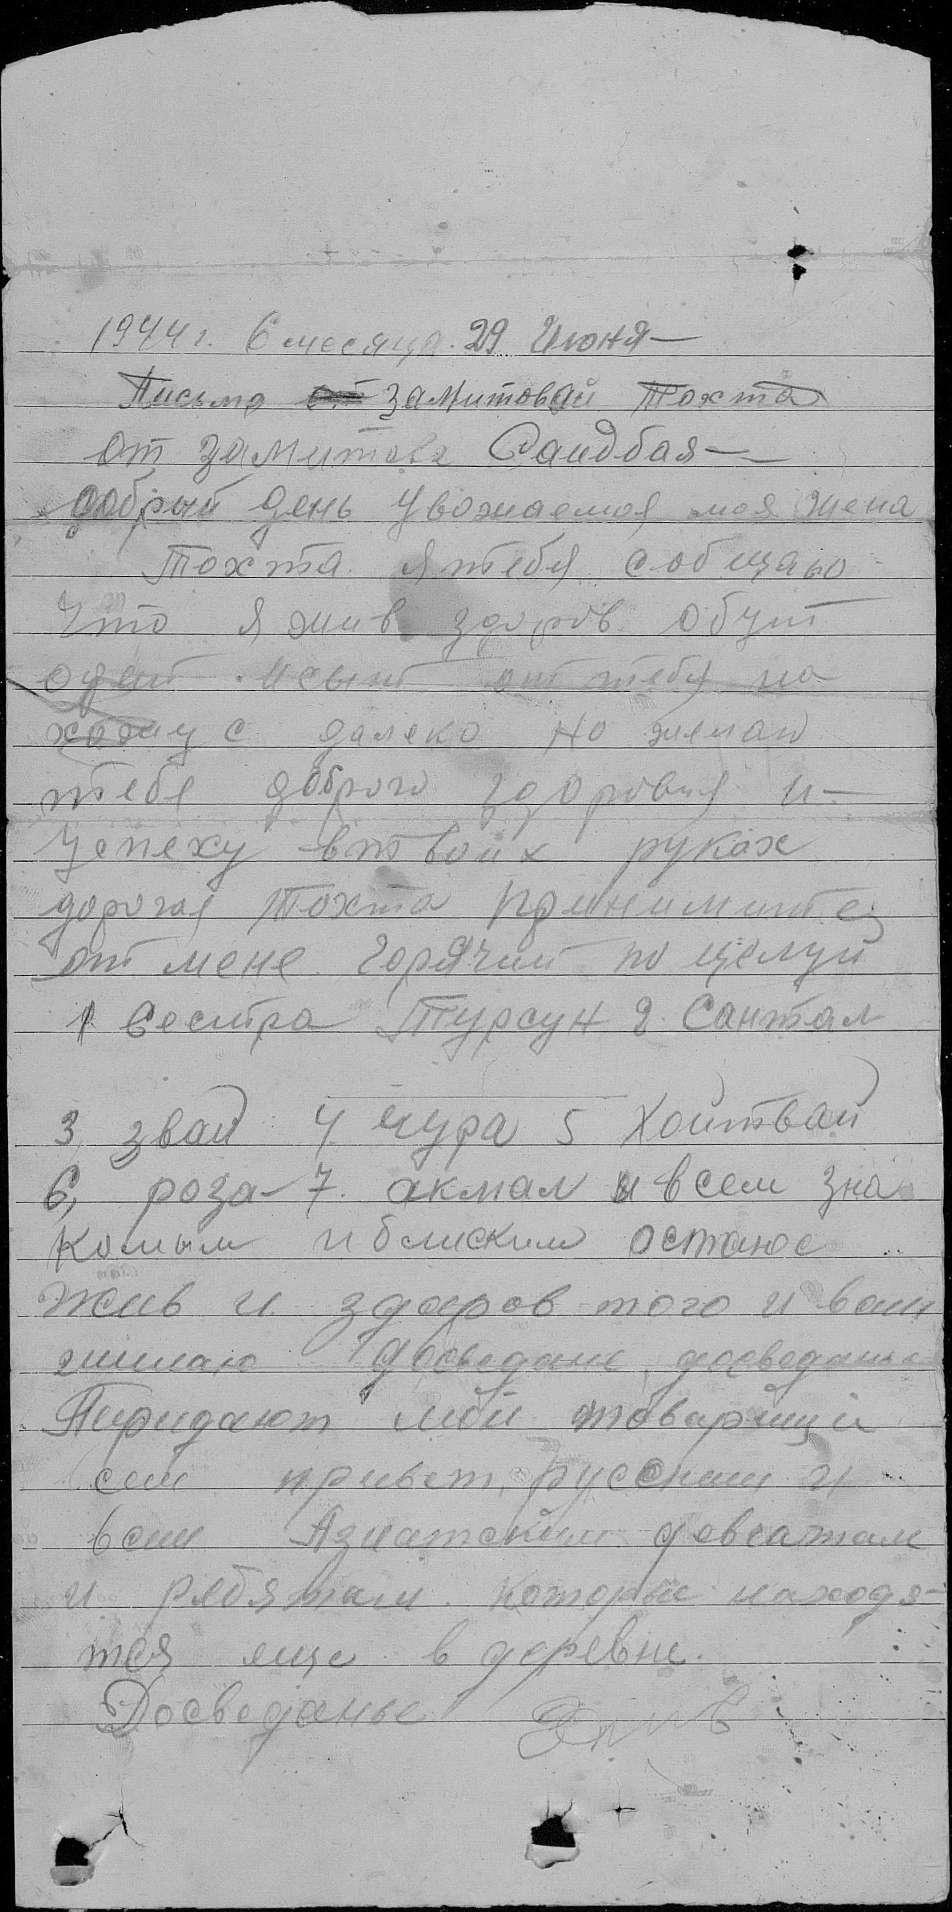 1944 г. 6 месяца. 29 Июня—
Письмо от Замитовай Тохта
от Замитова Саидбая——
добрый день Уважаемоя моя жена
Тохта я тебя собщаю
Что я жив здоров. Обут
одет и сыт от тебя на
хожус далеко но желаю
тебе доброго здоровия и—
Успеху втвоих руках
дорогая Тохта принимите
от мене Горячий по целуй
1 Сестра Турсун 2. Сантал
3 звай 4 чура 5 Хоитвай
6, роза— 7. акмал и всем зна
комым иблиским остаюс
жив и здоров того и вам
желаю Досведане досведанье
Пиридают мои товарищи
сем привет русским и
всем Азиатским девчатам
и ребятам которые находя—
тся еще в деревне.
Досведанье